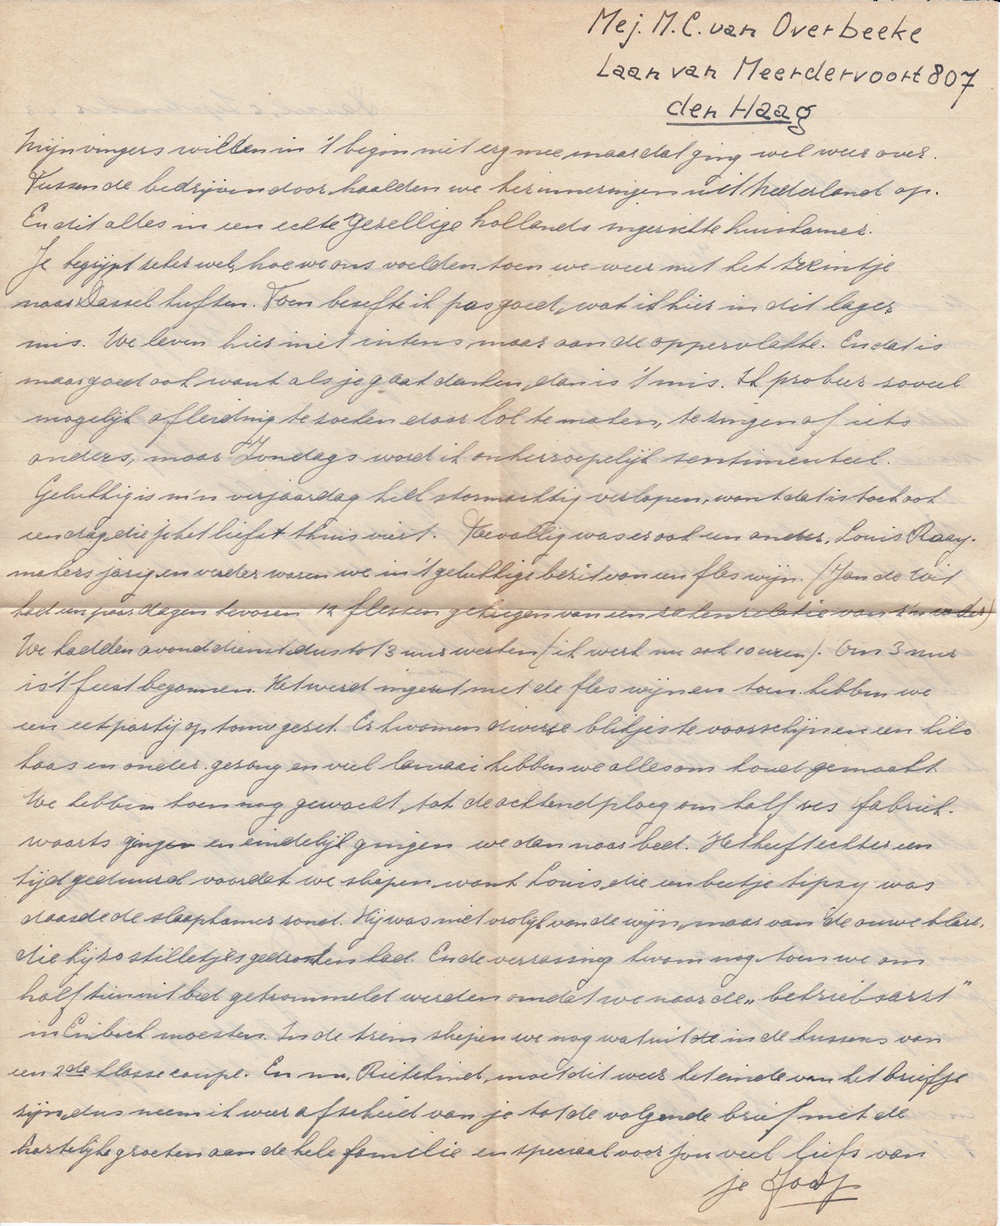 Mej. M. C. van Overbeeke
Laan van Meerdervoort 807
den Haag
Mijn vingers wilden in 't begin niet erg mee maar dat ging wel weer over.
Tussen de bedrijven door haalden we herinneringen uit Nederland op.
En dit alles in een echte gezellige hollands ingerichte huiskamer.
Je begrijpt zeker wel, hoe we ons voelden toen we weer met het treintje
naar Dassel tuften. Toen besefte ik pas goed, wat ik hier in dit lager
mis. We leven hier niet intens, maar aan de oppervlakte. En dat is
maar goed ook want als je gaat denken, dan is 't mis. Ik probeer zoveel
mogelijk afleiding te zoeken door lol te maken, te zingen of iets
anders, maar Zondags word ik onherroepelijk sentimenteel.
Gelukkig is m'n verjaardag heel stormachtig verlopen, want dat is toch ook
een dag die je het liefst thuis viert. Toevallig was er ook een ander, Louis Raay-
makers jarig en verder waren we in 't gelukkige bezit van een fles wijn. (Jan de Wit
had een paar dagen tevoren 12 flessen gekregen van een zakenrelatie van z'n vader)
We hadden avonddienst dus tot 3 uur werken (ik werk nu ook 10 uren). Om 3 uur
is 't feest begonnen. Het werd ingezet met de fles wijn en toen hebben we
een eetpartij op touw gezet. Er kwamen diverse blikjes te voorschijn en een kilo
kaas en onder gezang en veel lawaai hebben we alles om koud gemaakt
We hebben toen nog gewacht, tot de ochtendploeg om half zes fabriek-
waarts gingen en eindelijk gingen we dan naar bed. Het heeft echter een
tijd geduurd voordat we sliepen want Louis, die een beetje tipsy was
daarde de slaapkamer rond. Hij was niet vrolijk van de wijn, maar van de ouwe klare,
die hij zo stilletjes gedronken had. En de verrassing kwam nog toen we om
half tien uit bed getrommeld werden omdat we naar de „betriebsarzt"
in Einbeck moesten. In de trein sliepen we nog wat uit in de kussens van
een 2de klasse coupe. En nu, Rietekind, moet dit weer het einde van het briefje
zijn, dus neem ik weer afscheid van je tot de volgende brief met de
hartelijke groeten aan de hele familie en speciaal voor jou veel liefs van
je Joop